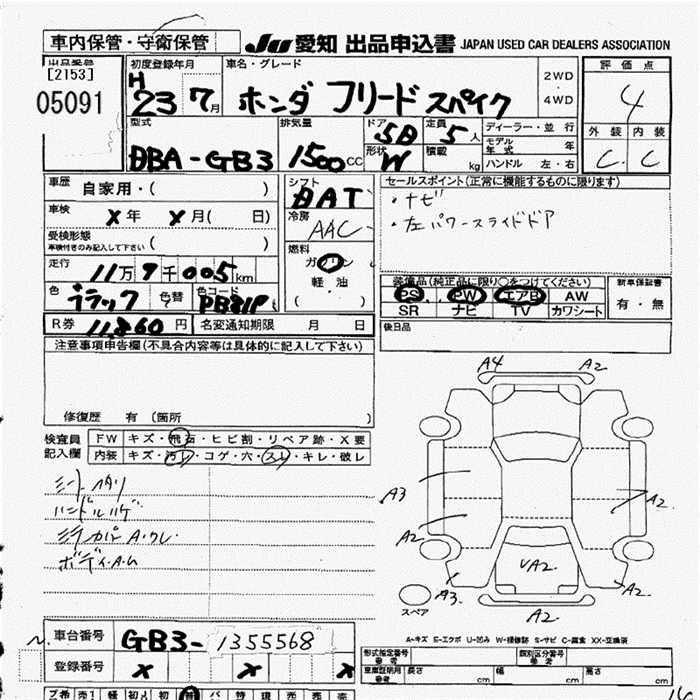 車内保管・守衛保管
JU 愛知 出品申込書 JAPAN USED CAR DEALERS ASSOCIATION
出品番号
[2153]
05091
初度登録年月
H 23 7月
車名・グレード
ホンダ フリードスパイク
2WD
・
4WD
評価点
4
外装 内装
C C
型式
DBA-GB3
排気量
1500CC
ドア
5D
形状
W
定員
5人
積載
kg
ディーラー・並行
モデル年式 年
ハンドル 左・右
車歴
自家用・( )
車検
X年 X月( 日)
受検形態
車検付きのみ記入して下さい ( )
走行
11万9千005km
色
ブラック
色替
色コード
PB81P
シフト
DAT
冷房
AAC
燃料
ガソリン
軽油
( )
セールスポイント(正常に機能するものに限ります)
・ナビ
・左パワースライドドア
装備品(純正品に限り○をつけてください)
PS PW エアB AW
SR ナビ TV カワシート
新車保証書
有・無
後日品
R券 11860円
名変通知期限 月 日
注意事項申告欄(不具合内容等は具体的に記入して下さい)
修復歴 有 (箇所 )
検査員
記入欄
FW キズ・飛石・ヒビ割・リペア跡・X要
内装 キズ・汚レ・コゲ・穴・スレ・キレ・破レ
シートヘタリ
ハンドルハゲ
ミラーカバーA・ワレ
ボディA・ム
A4 A2
A3 A2
A2
VA2
A3 A2
A2
スペア
A-キズ E-エクボ U-凹み W-補修跡 S-サビ C-腐食 XX-交換済
車台番号
GB3-1355568
登録番号
X X X
型式指定番号
参考
類別区分番号
参考
車庫証明用
参考
長さ cm 幅 cm 高さ cm